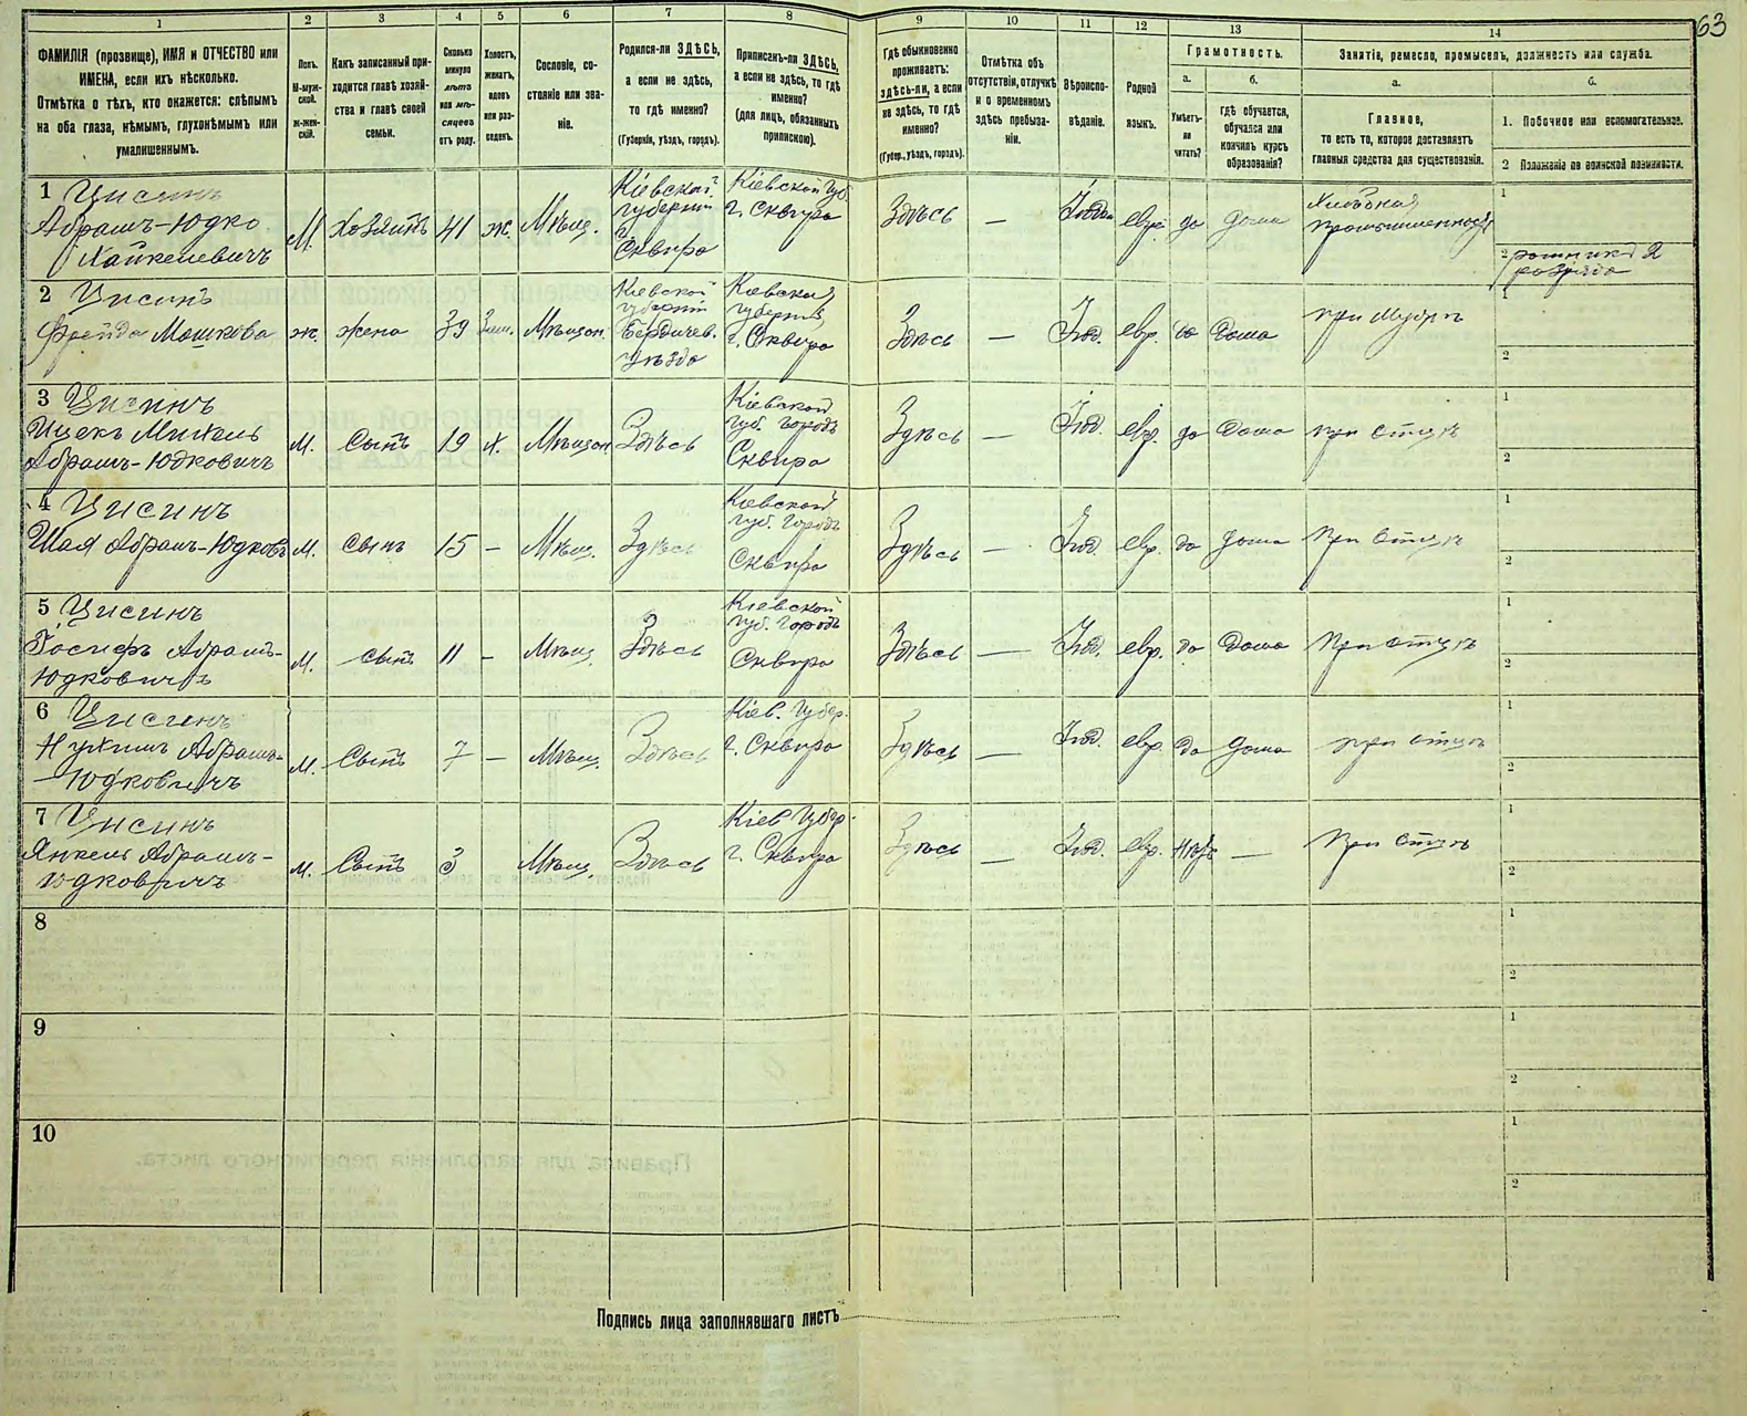 63
1 2 3 4 5 6 7 8 9 10 11 12 13 14
ФАМИЛІЯ (прозвище), ИМЯ и ОТЧЕСТВО или
ИМЕНА, если ихъ нѣсколько.
Отмѣтка о тѣхъ, кто окажется: слѣпымъ
на оба глаза, нѣмымъ, глухонѣмымъ или
умалишеннымъ.
Полъ.
М-муж-
ской.
ж-жен-
скій.
Какъ записанный при-
ходится главѣ хозяй-
ства и главѣ своей
семьи.
Сколько
минуло
лѣтъ
или мѣ-
сяцевъ
отъ роду.
Холостъ,
женатъ,
вдовъ
или раз-
веденъ.
Сословіе, со-
стояніе или зва-
ніе.
Родился-ли ЗДѢСЬ,
а если не здѣсь,
то гдѣ именно?
(Губернія, уѣздъ, городъ).
Приписанъ-ли ЗДѢСЬ,
а если не здѣсь, то гдѣ
именно?
(для лицъ, обязанныхъ
припискою).
Гдѣ обыкновенно
проживаетъ:
здѣсь-ли, а если
не здѣсь, то гдѣ
именно?
(Губер., уѣздъ, городъ).
Отмѣтка объ
отсутствіи, отлучкѣ
и о временномъ
здѣсь пребыва-
ніи.
Вѣроиспо-
вѣданіе.
Родной
языкъ.
Грамотность.
а.
Умѣетъ-
ли
читать?
б.
Гдѣ обучается,
обучался или
кончилъ курсъ
образованія?
Занятіе, ремесло, промыселъ, должность или служба.
а.
Главное,
то есть то, которое доставляетъ
главныя средства для существованія.
б.
1. Побочное или вспомогательное.
2 Положеніе по воинской повинности.
1 Цисинъ
Абрамъ-Юдко
Хайкелевичъ
М. Хозяинъ 41 ж. Мѣщ.
Кіевской
губерніи
г.
Сквира
Кіевской Губ.
г. Сквира
Здѣсь — евр. да дома
Хлѣбная
промышленность
1
2 ратникъ 2
разряда
2 Цисинъ
Фрейда Мошкова
ж. жена 39 Зам. Мѣщан.
Кіевской
губерніи
Бердичев.
уѣзда
Кіевская
губернія,
г. Сквира
Здѣсь — Іюд. евр. да Дома при Мужѣ
1
2
3 Цисинъ
Ицекъ Михель
Абрамъ-Юдковичъ
М. Сынъ 19 х. Мѣщан Здѣсь
Кіевской
Губ. городъ
Сквира
Здѣсь — Іюд. евр. да Дома при отцѣ
1
2
4 Цисинъ
Шая Абрамъ-Юдковъ
М. Сынъ 15 — Мѣщ. Здѣсь
Кіевской
Губ. Городъ
Сквира
Здѣсь — Іюд. евр. да дома При отцѣ
1
2
5 Цисинъ
Іосифъ Абрамъ-
Юдковичъ
М. сынъ 11 — Мѣщ. Здѣсь
Кіевской
Губ. Городъ
Сквира
Здѣсь — Іюд. евр. да Дома При отцѣ
1
2
6 Цисинъ
Нухимъ Абрамъ-
Юдковичъ
М. Сынъ 7 — Мѣщ. Здѣсь
Кіев. Губер.
г. Сквира
Здѣсь — Іюд. евр. да дома при отцѣ
1
2
7 Цисинъ
Янкель Абрамъ-
Юдковичъ
М. Сынъ 3 Мѣщ. Здѣсь
Кіев Губер.
г. Сквира
Здѣсь — Іюд. евр. нѣтъ — При отцѣ
1
2
8
1
2
9
1
2
10
1
2
Подпись лица заполнявшаго листъ